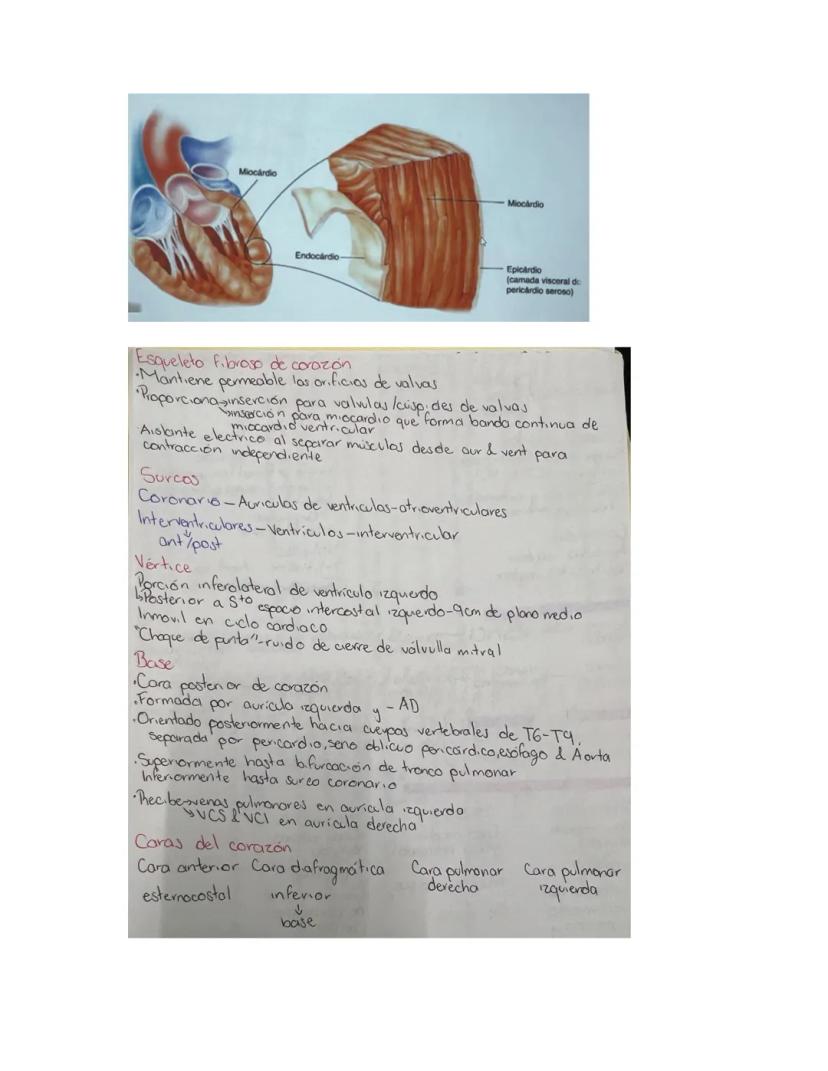 Miocárdio
Miocárdio
Endocárdio
Epicárdio
(camada visceral do
pericárdio seroso)
Esqueleto fibroso de corazón
·Mantiene permeable los orificios de valvas
·Proporciona→inserción para valvulas/cúspides de valvas
↘inserción para miocardio que forma banda continua de
miocardio ventricular
·Aislante electrico al separar músculos desde aur & vent para
contracción independiente
Surcos
Coronario – Auriculas de ventriculas-atrioventriculares
Interventriculares – Ventriculos – interventricular
↓
ant/post
Vértice
Porción inferolateral de ventrículo izquierdo
↳Posterior a 5to espacio intercostal izquierdo-9cm de plano medio
Inmovil en ciclo cardiaco
"Choque de punta"-ruido de cierre de válvulla mitral
Base
·Cara posterior de corazón
·Formada por aurícula izquierda y - AD
·Orientado posteriormente hacia cuerpos vertebrales de T6-T9,
separada por pericardio, seno oblicuo pericárdico, esófago & Aorta
·Superiormente hasta bifurcación de tronco pulmonar
Inferiormente hasta surco coronario
·Recibe→venas pulmonares en aurícula izquierda
↘VCS & VCI en aurícula derecha
Caras del corazón
Cara anterior Cara diafragmática Cara pulmonar Cara pulmonar
derecha izquierda
esternocostal inferior
↓
base